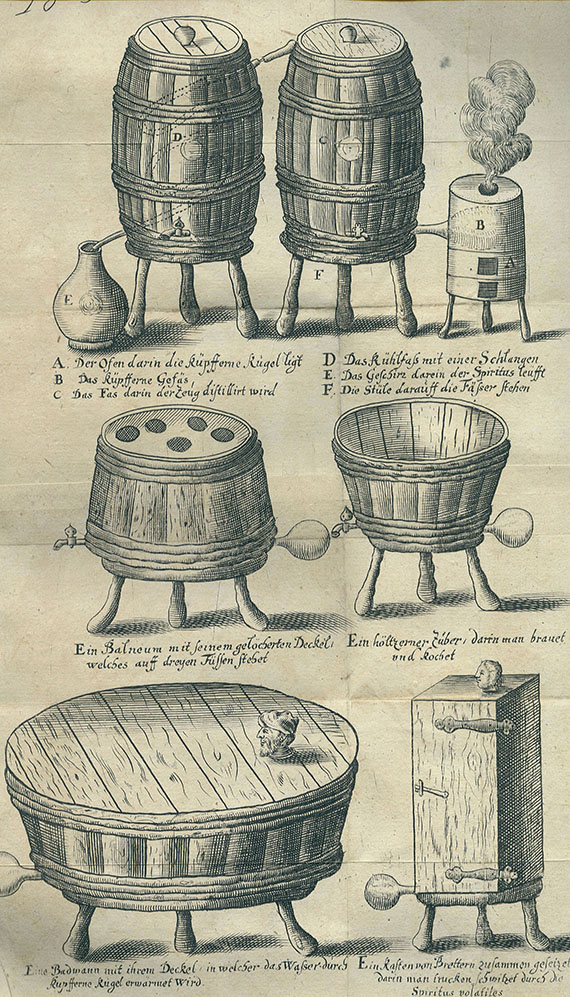 D
C
B
A
E
F
A. Der Ofen darin die Küpfferne Kugel ligt
B Das Küpfferne Gefäs,
C Das Fas darin der Zeug distillirt wird
D Das Kühlfaß mit einer Schlangen
E. Das Geschirz darein der Spiritus leufft
F. Die Stüle darauff die Fässer stehen
Ein Balneum mit seinem gelöcherten Deckel,
welches auff dreyen Füssen stehet
Ein höltzerner Züber, darin man brauet
vnd kochet
Eine Badwann mit ihrem Deckel, in welcher das Wasser durch
Küpfferne Kugel erwärmet Wird.
Ein Kasten von Brettern zusammen gesetzet
darin man trucken schwitzet durch die
Spiritus volatiles